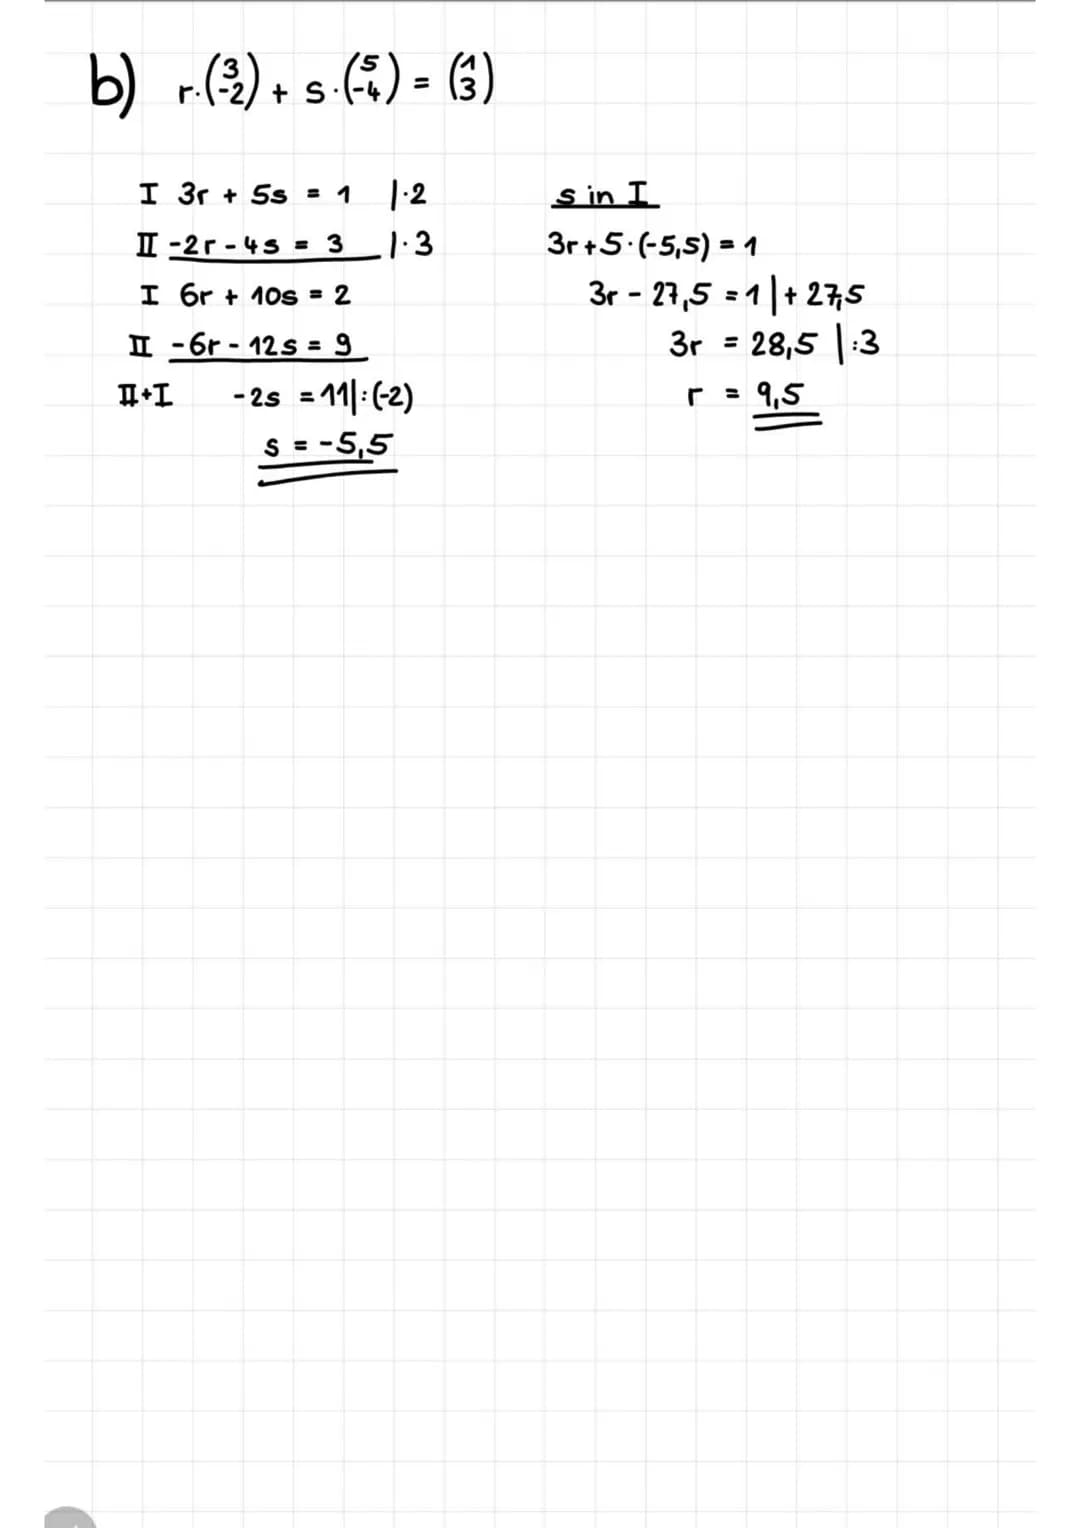 b) r·(3 -2) + s·(5 -4) = (1 3)
I 3r + 5s = 1 |·2
II -2r - 4s = 3 |·3
I 6r + 10s = 2
II -6r - 12s = 9
II+I -2s = 11 |:(-2)
s = -5,5
s in I
3r + 5·(-5,5) = 1
3r - 27,5 = 1 | + 27,5
3r = 28,5 |:3
r = 9,5